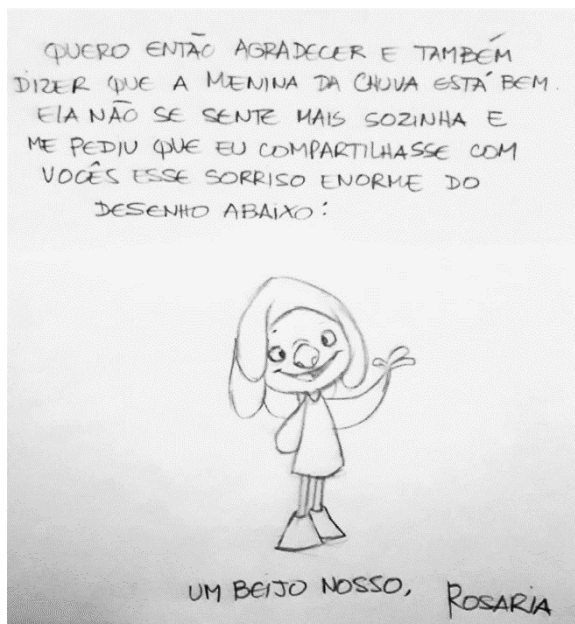 QUERO ENTÃO AGRADECER E TAMBÉM
DIZER QUE A MENINA DA CHUVA ESTÁ BEM.
ELA NÃO SE SENTE MAIS SOZINHA E
ME PEDIU QUE EU COMPARTILHASSE COM
VOCÊS ESSE SORRISO ENORME DO
DESENHO ABAIXO:
UM BEIJO NOSSO,
ROSARIA